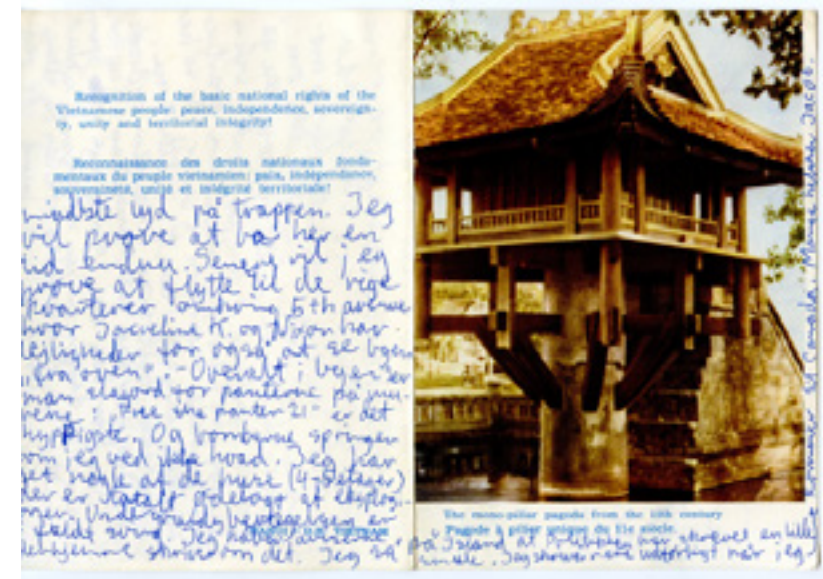 Recognition of the basic national rights of the
Vietnamese people: peace, independence, sovereign-
ty, unity and territorial integrity!
Reconnaissance des droits nationaux fonda-
mentaux du peuple vietnamien: paix, indépendance,
souveraineté, unité et intégrité territoriale!
lyd på trappen. Jeg
vil prøve at bo her en
tid endnu. Senere vil jeg
prøve at flytte til de rige
kvarterer omkring 5th avenue
hvor Jacqueline K. og Nixon har
lejligheder for også at se byen
"fra oven". - Overalt i byen er
man slagord for panterne på mu-
rene: "Free the panter 21" er det
hyppigste. Og bomberne springer
som jeg ved ikke hvad. Jeg har
set nogle af de huse (4-etager)
der er totalt ødelagt af eksplo-
Undergrundsbevægelsen er
i fuld sving. Jeg
derhjemme skrive om det. Jeg så
The mono-pillar pagoda from the 11th century
Pagode à pilier unique du 11e siècle.
på Island at Politiken har skrevet en lille
Jeg skriver mere udførligt når jeg
kommer til Canada. Mange hilsner Jacob.